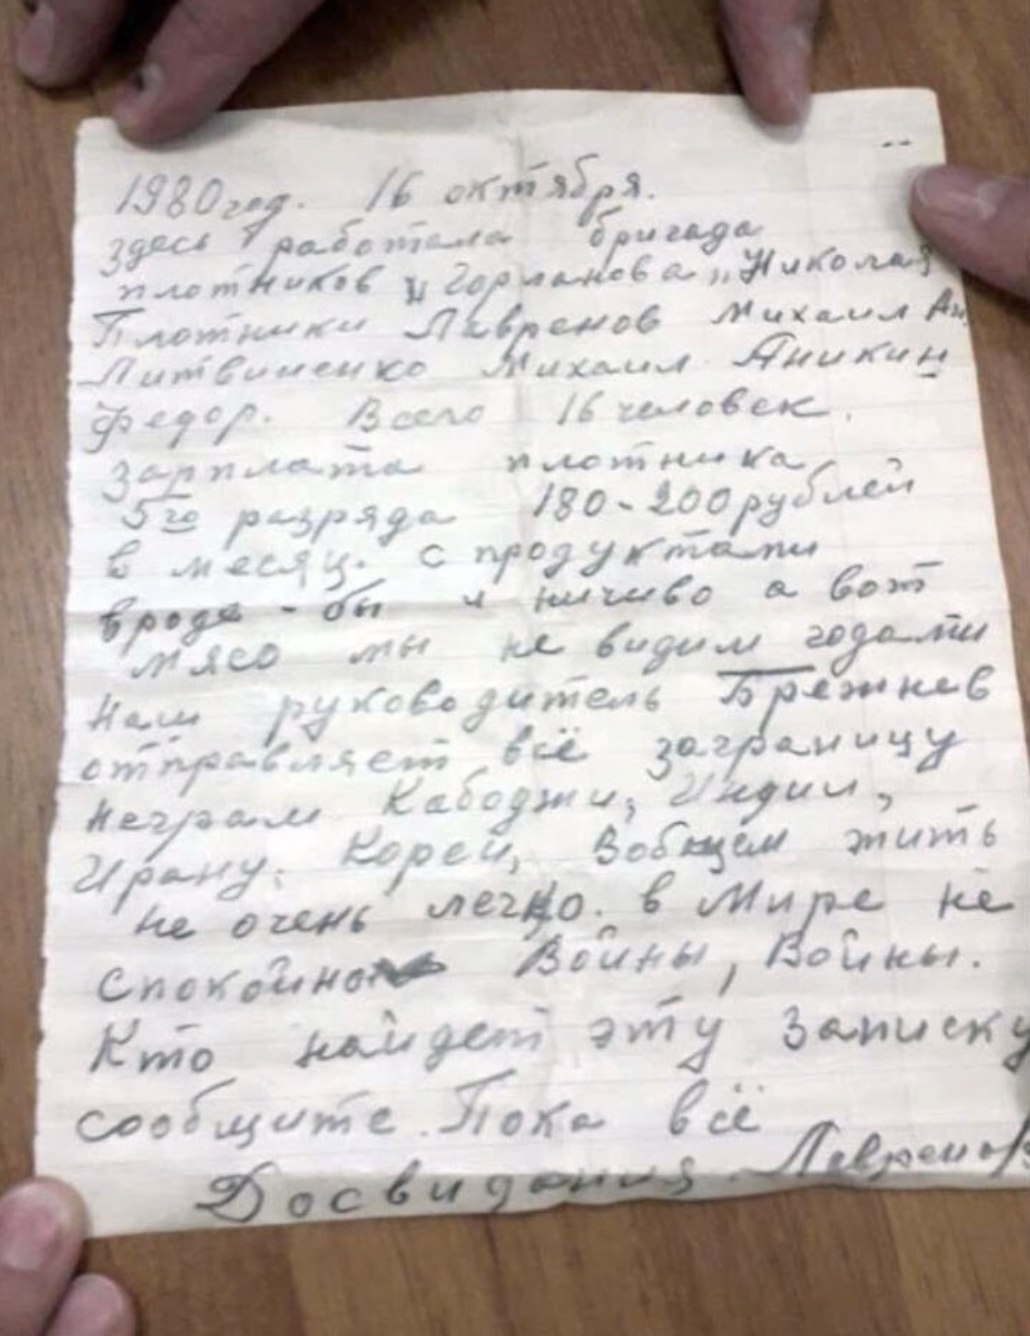 1980 год. 16 октября.
здесь работала бригада
плотников „Горланова„ Николая
Плотники Лавренов Михаил Ан.
Литвиненко Михаил. Аникин
Федор. Всего 16 человек.
Зарплата плотника
5го разряда 180-200 рублей
в месяц. с продуктами
вроде-бы и ничиво а вот
мясо мы не видим годами
наш руководитель Брежнев
отправляет всё заграницу
неграм Кабоджи, Индии,
Ирану, Кореи, Вобщем жить
не очень легко. в Мире не
спокойно Войны, Войны.
Кто найдет эту записку
сообщите. Пока всё
Досвидания. Лавренов